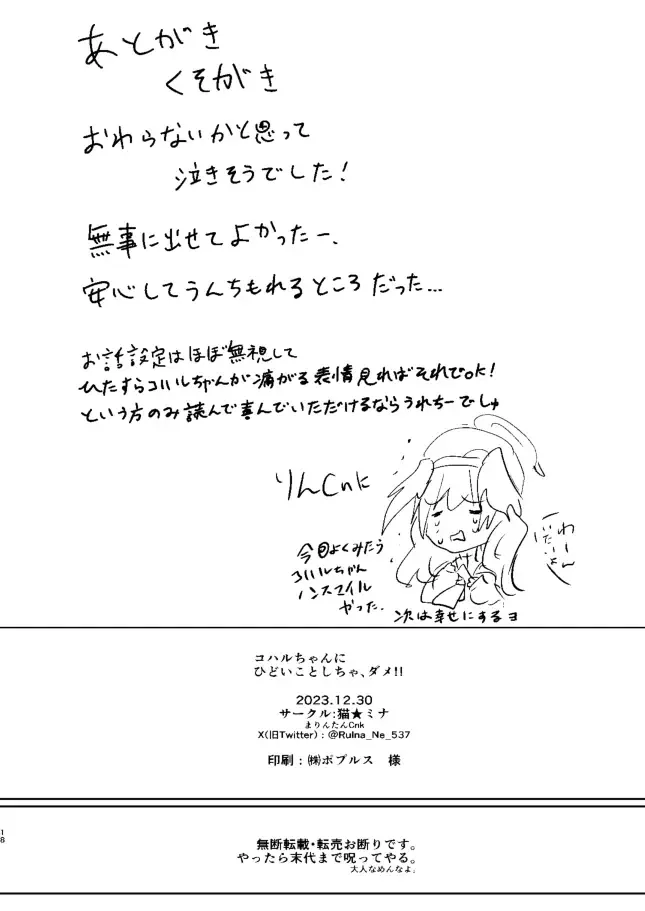 あとがき
くそがき
おわらないかと思って
泣きそうでした!
無事に出せてよかったー、
安心してうんちもれるところだった...
お話設定はほぼ無視して
ひたすらコハルちゃんが痛がる表情見ればそれでok!
という方のみ読んで喜んでいただけるならうれちーでしゅ
りんCnに
わーん
いたいよ〜
今回よくみたら
コハルちゃん
ノンスマイル
やった.
次は幸せにするヨ
コハルちゃんに
ひどいことしちゃ、ダメ!!
2023.12.30
サークル:猫★ミナ
まりんたんCnk
X(旧Twitter) : @RuIna_Ne_537
印刷 : ㈱ポプルス 様
18
無断転載・転売お断りです。
やったら末代まで呪ってやる。
大人なめんなよ。